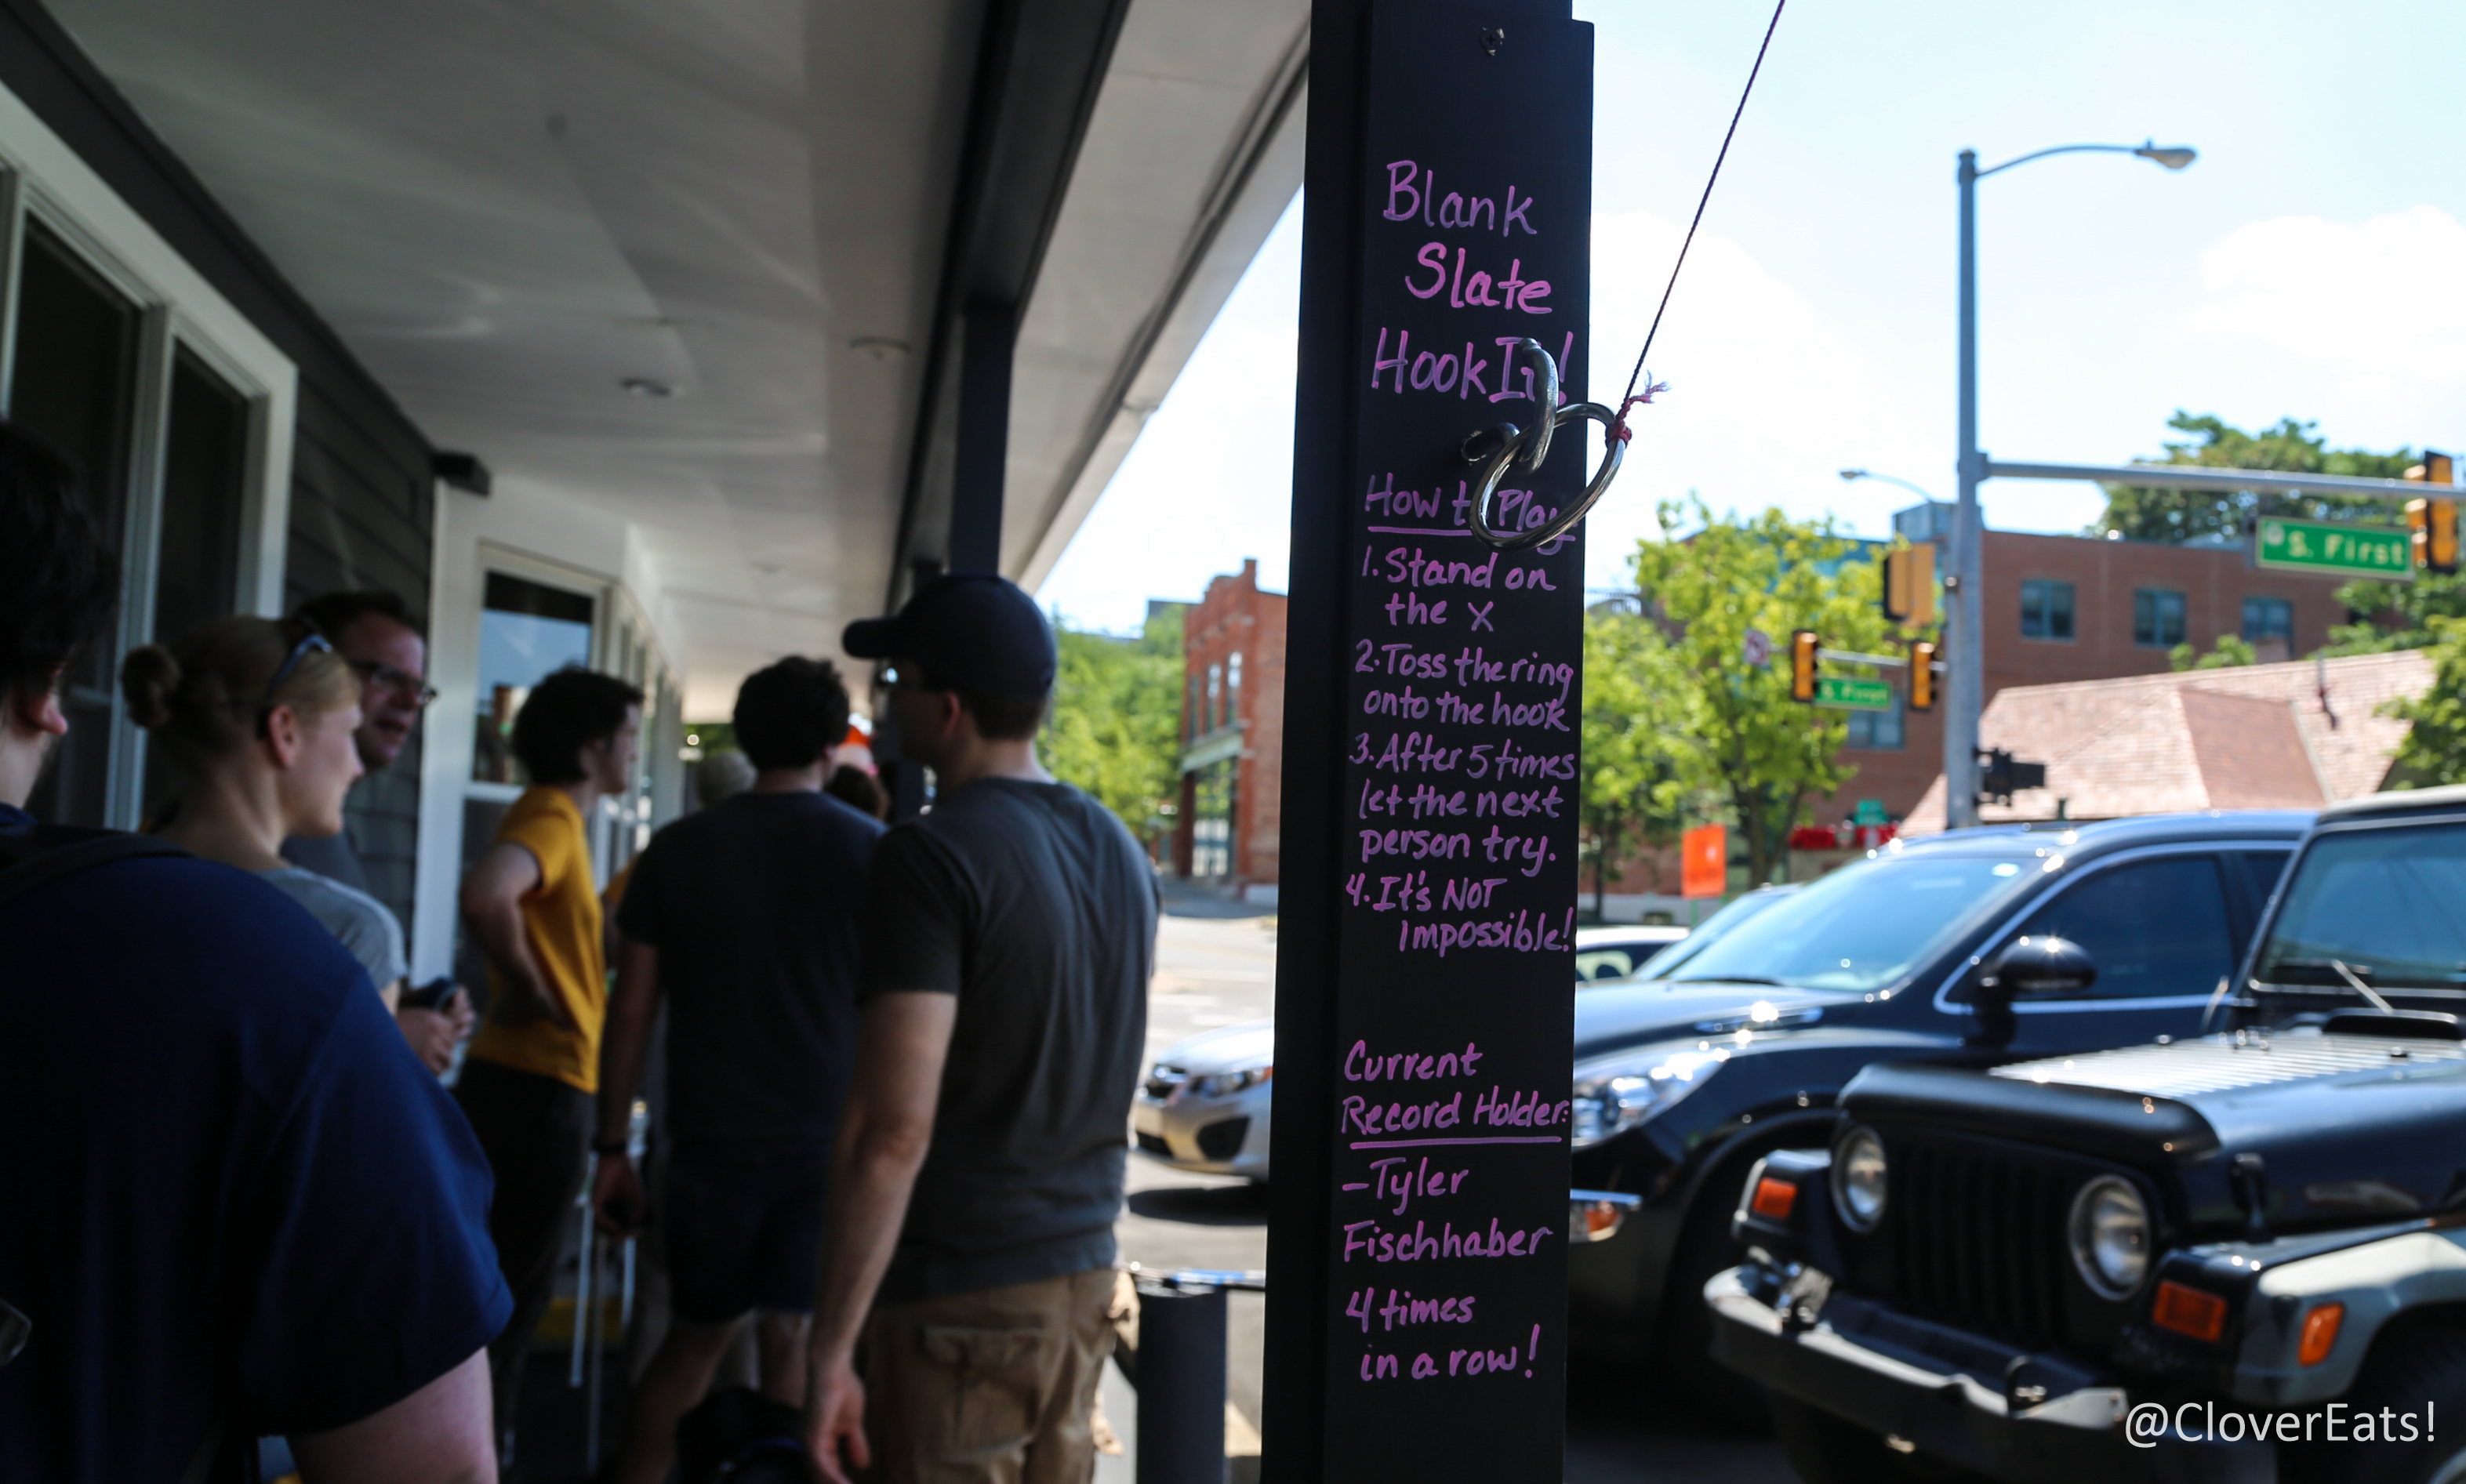 Blank
Slate
Hook It!
How to Play
1. Stand on
the X
2. Toss the ring
onto the hook
3. After 5 times
let the next
person try.
4. It's NOT
impossible!
Current
Record Holder:
-Tyler
Fischhaber
4 times
in a row!
S. First
S. First
@CloverEats!